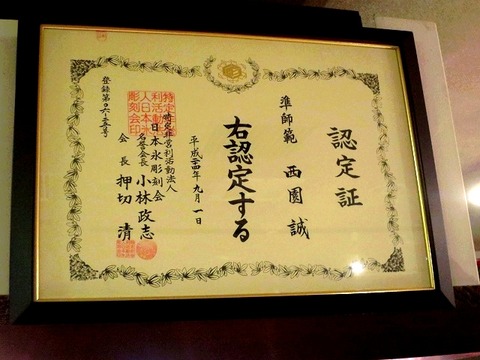 認定証
準師範 西園 誠
右認定する
平成二四年九月一日
特定非営利活動法人
日本氷彫刻会
名誉会長 小林政志
会長 押切 清
特定非営
利活動法
人日本氷
彫刻会印